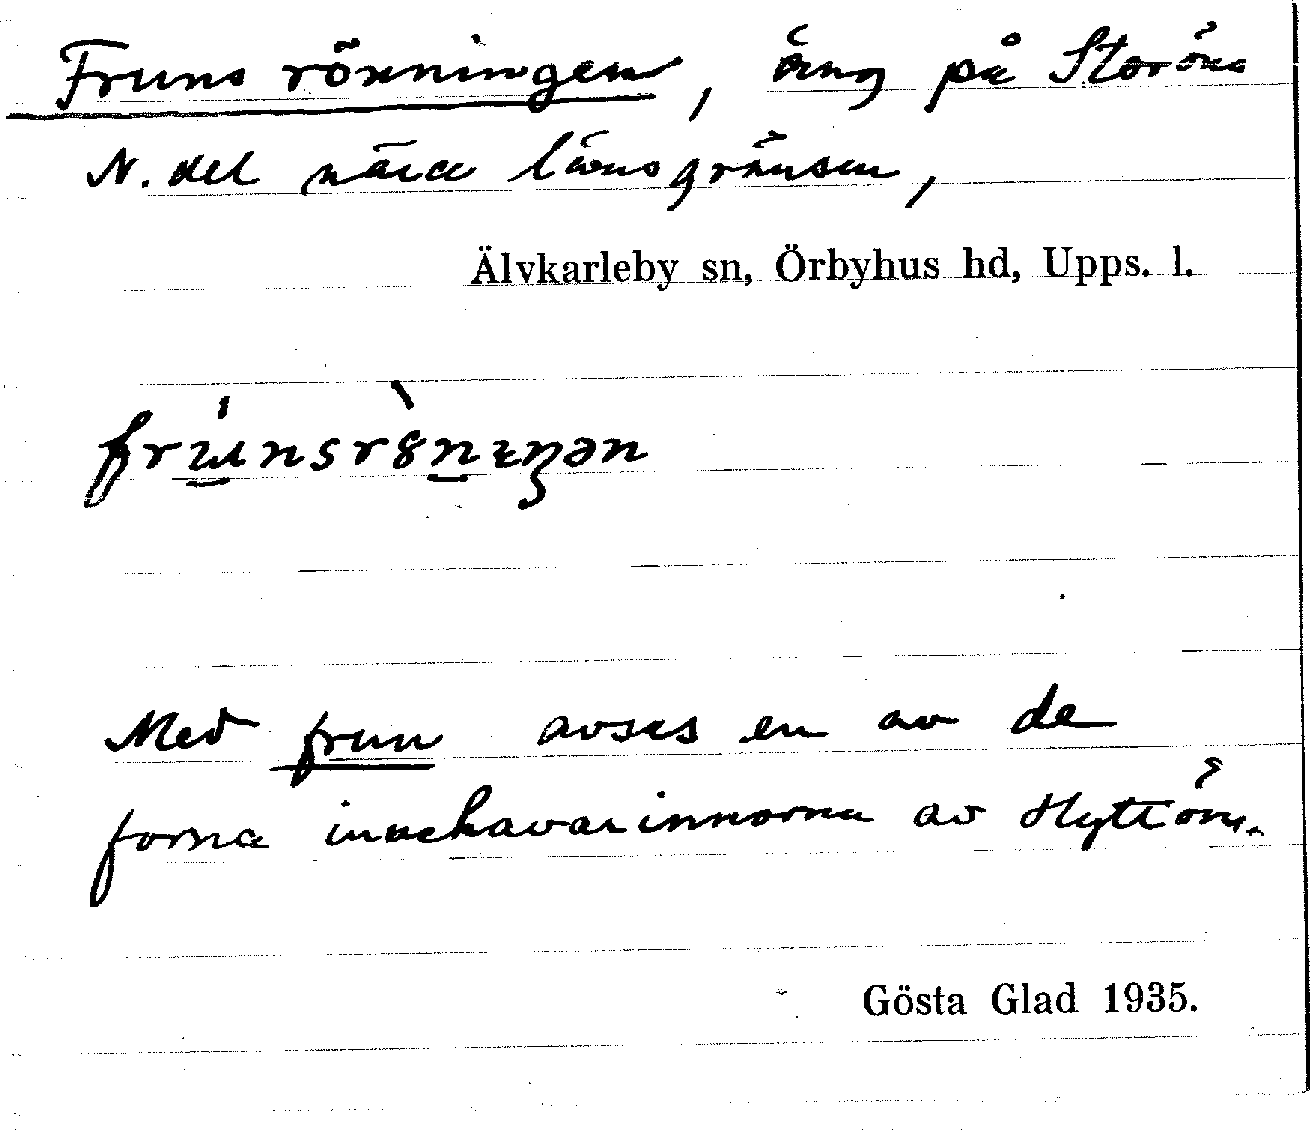 Fruns rönningen, äng på Storöns
N. del nära länsgränsen,
Älvkarleby sn, Örbyhus hd, Upps. l.
Med frun avses en av de
forna innehavarinnorna av Hyttön.
Gösta Glad 1935.